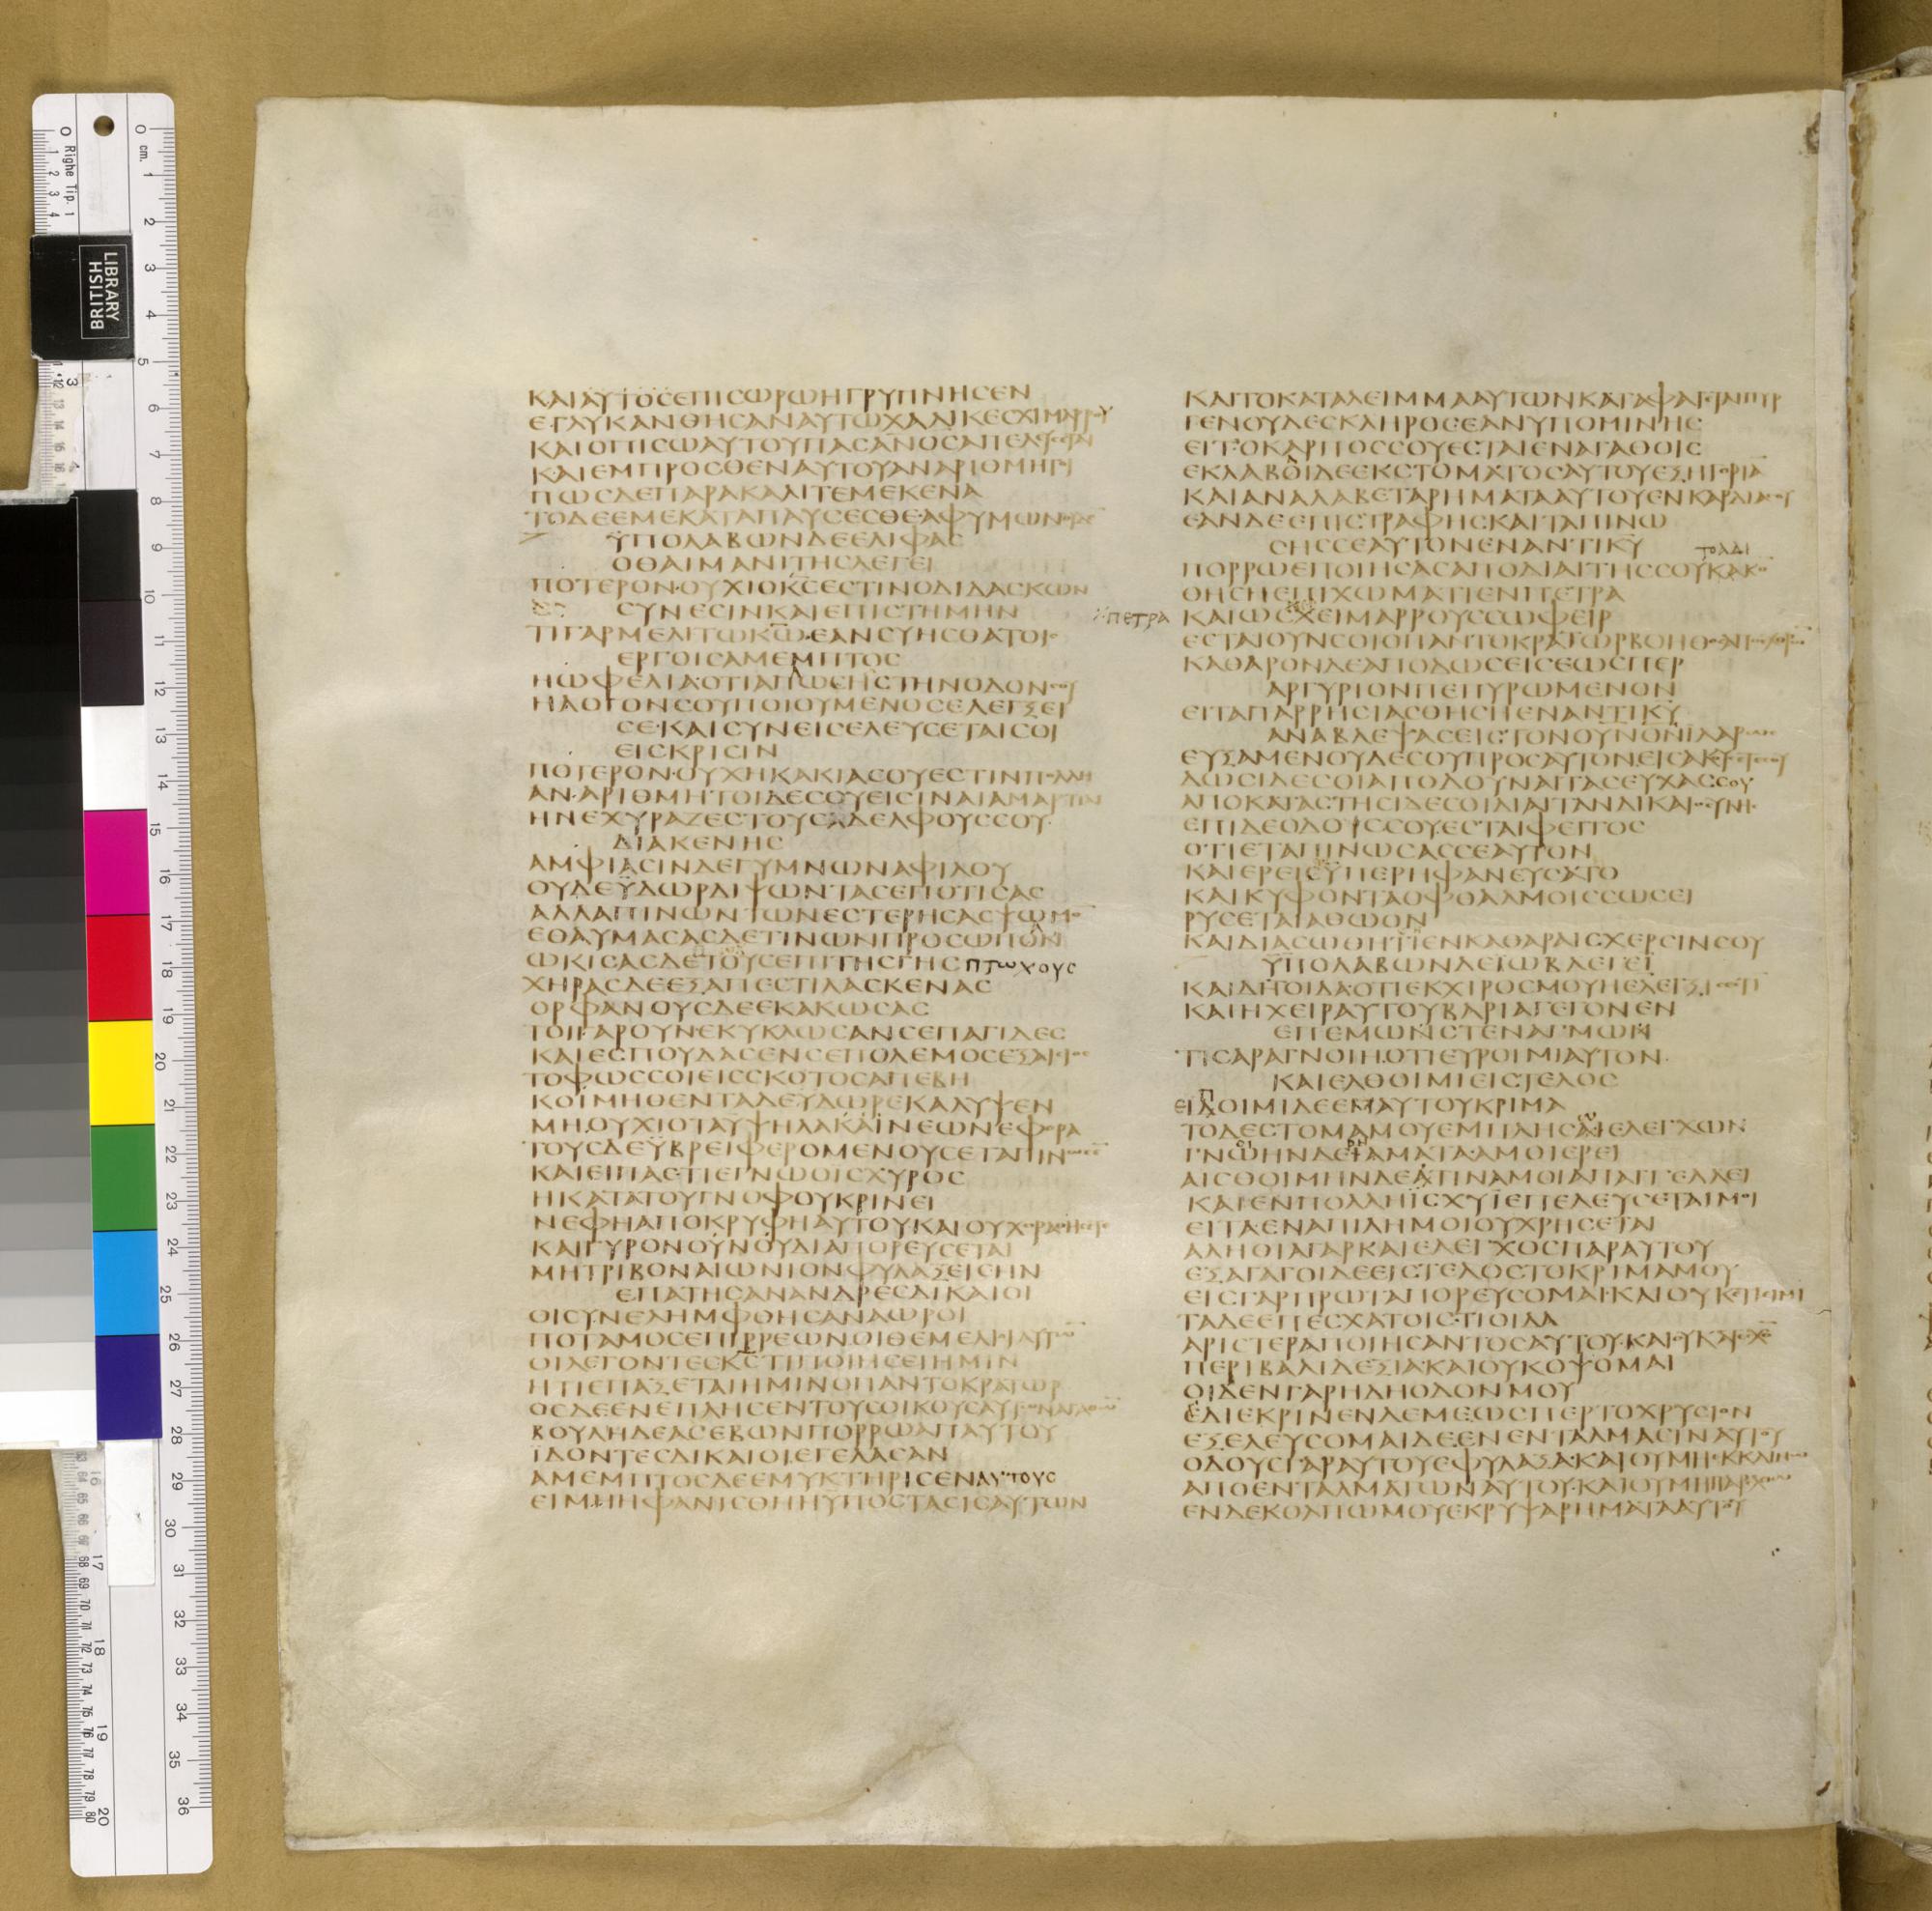 ΚΑΙΑΥΤΟϹΕΠΙϹΩΡΩΗΓΡΥΠΝΗϹΕΝ
ΕΓΛΥΚΑΝΘΗϹΑΝΑΥΤΩΧΑΛΙΚΕϹΧΙΜΑΡΡΟΥ
ΚΑΙΟΠΙϹΩΑΥΤΟΥΠΑϹΑΝΟϹΑΠΕΛΕΥϹΕΤΑΙ
ΚΑΙΕΜΠΡΟϹΘΕΝΑΥΤΟΥΑΝΑΡΙΘΜΗΤΟΙ
ΠΩϹΔΕΠΑΡΑΚΑΛΙΤΕΜΕΚΕΝΑ
ΤΟΔΕΕΜΕΚΑΤΑΠΑΥϹΕϹΘΕΑΦΥΜΩΝΟΥΔΕ
ΫΠΟΛΑΒΩΝΔΕΕΛΙΦΑϹ
ΟΘΑΙΜΑΝΙΤΗϹΛΕΓΕΙ
ΠΟΤΕΡΟΝΟΥΧΙΟΚϹΕϹΤΙΝΟΔΙΔΑϹΚΩΝ
ϹΥΝΕϹΙΝΚΑΙΕΠΙϹΤΗΜΗΝ
ΤΙΓΑΡΜΕΛΙΤΩΚΩΕΑΝϹΥΗϹΘΑΤΟΙϹ
ΕΡΓΟΙϹΑΜΕΜΠΤΟϹ
ΗΩΦΕΛΙΑΟΤΙΑΠΛΩϹΗϹΤΗΝΟΔΟΝϹΟΥ
ΗΛΟΓΟΝϹΟΥΠΟΙΟΥΜΕΝΟϹΕΛΕΓΞΕΙ
ϹΕΚΑΙϹΥΝΕΙϹΕΛΕΥϹΕΤΑΙϹΟΙ
ΕΙϹΚΡΙϹΙΝ
ΠΟΤΕΡΟΝΟΥΧΗΚΑΚΙΑϹΟΥΕϹΤΙΝΠΟΛΛΗ
ΑΝΑΡΙΘΜΗΤΟΙΔΕϹΟΥΕΙϹΙΝΑΙΑΜΑΡΤΙΑΙ
ΗΝΕΧΥΡΑΖΕϹΤΟΥϹΑΔΕΛΦΟΥϹϹΟΥ
ΔΙΑΚΕΝΗϹ
ΑΜΦΙΑϹΙΝΔΕΓΥΜΝΩΝΑΦΙΛΟΥ
ΟΥΔΕΫΔΩΡΔΙΨΩΝΤΑϹΕΠΟΤΙϹΑϹ
ΑΛΛΑΠΙΝΩΝΤΩΝΕϹΤΕΡΗϹΑϹΨΩΜΟΝ
ΕΘΑΥΜΑϹΑϹΔΕΤΙΝΩΝΠΡΟϹΩΠΟΝ
ΩΚΙϹΑϹΔΕΤΟΥϹΕΠΙΤΗϹΓΗϹΠΤΩΧΟΥϹ
ΧΗΡΑϹΔΕΕΞΑΠΕϹΤΙΛΑϹΚΕΝΑϹ
ΟΡΦΑΝΟΥϹΔΕΕΚΑΚΩϹΑϹ
ΤΟΙΓΑΡΟΥΝΕΚΥΚΛΩϹΑΝϹΕΠΑΓΙΔΕϹ
ΚΑΙΕϹΠΟΥΔΑϹΕΝϹΕΠΟΛΕΜΟϹΕΞΑΙϹΙΟϹ
ΤΟΦΩϹϹΟΙΕΙϹϹΚΟΤΟϹΑΠΕΒΗ
ΚΟΙΜΗΘΕΝΤΑΔΕΥΔΩΡΕΚΑΛΥΨΕΝ
ΜΗΟΥΧΙΟΤΑΥΨΗΛΑΚΑΙΝΕΩΝΕΦΟΡΑ
ΤΟΥϹΔΕΫΒΡΕΙΦΕΡΟΜΕΝΟΥϹΕΤΑΠΙΝΩϹΕΝ
ΚΑΙΕΙΠΑϹΤΙΕΓΝΩΟΙϹΧΥΡΟϹ
ΗΚΑΤΑΤΟΥΓΝΟΦΟΥΚΡΙΝΕΙ
ΝΕΦΗΑΠΟΚΡΥΦΗΑΥΤΟΥΚΑΙΟΥΧΟΡΑΘΗϹΕΤΑΙ
ΚΑΙΓΥΡΟΝΟΥΝΟΥΔΙΑΠΟΡΕΥϹΕΤΑΙ
ΜΗΤΡΙΒΟΝΑΙΩΝΙΟΝΦΥΛΑΞΕΙϹΗΝ
ΕΠΑΤΗϹΑΝΑΝΔΡΕϹΔΙΚΑΙΟΙ
ΟΙϹΥΝΕΛΗΜΦΘΗϹΑΝΑΩΡΟΙ
ΠΟΤΑΜΟϹΕΠΙΡΡΕΩΝΟΙΘΕΜΕΛΙΟΙΑΥΤΩΝ
ΟΙΛΕΓΟΝΤΕϹΚϹΤΙΠΟΙΗϹΕΙΗΜΙΝ
ΗΤΙΕΠΑΞΕΤΑΙΗΜΙΝΟΠΑΝΤΟΚΡΑΤΩΡ
ΟϹΔΕΕΝΕΠΛΗϹΕΝΤΟΥϹΟΙΚΟΥϹΑΥΤΩΝΑΓΑΘΩΝ
ΒΟΥΛΗΔΕΑϹΕΒΩΝΠΟΡΡΩΑΠΑΥΤΟΥ
ΪΔΟΝΤΕϹΔΙΚΑΙΟΙΕΓΕΛΑϹΑΝ
ΑΜΕΜΠΤΟϹΔΕΕΜΥΚΤΗΡΙϹΕΝΑΥΤΟΥϹ
ΕΙΜΗΗΦΑΝΙϹΘΗΗΥΠΟϹΤΑϹΙϹΑΥΤΩΝ
ΚΑΙΤΟΚΑΤΑΛΕΙΜΜΑΑΥΤΩΝΚΑΤΑΦΑΓΕΤΑΙΠΥΡ
ΓΕΝΟΥΔΕϹΚΛΗΡΟϹΕΑΝΥΠΟΜΙΝΗϹ
ΕΙΤΟΚΑΡΠΟϹϹΟΥΕϹΤΑΙΕΝΑΓΑΘΟΙϹ
ΕΚΛΑΒΟΙΔΕΕΚϹΤΟΜΑΤΟϹΑΥΤΟΥΕΞΗΓΟΡΙΑ
ΚΑΙΑΝΑΛΑΒΕΤΑΡΗΜΑΤΑΑΥΤΟΥΕΝΚΑΡΔΙΑϹΟΥ
ΕΑΝΔΕΕΠΙϹΤΡΑΦΗϹΚΑΙΤΑΠΙΝΩ
ϹΗϹϹΕΑΥΤΟΝΕΝΑΝΤΙΚΥ
ΠΟΡΡΩΕΠΟΙΗϹΑϹΑΠΟΔΙΑΙΤΗϹϹΟΥΚΑΚΟΝ
ΘΗϹΗΕΠΙΧΩΜΑΤΙΕΝΠΕΤΡΑ
ΠΕΤΡΑ ΚΑΙΩϹΧΕΙΜΑΡΡΟΥϹϹΩΦΕΙΡ
ΕϹΤΑΙΟΥΝϹΟΙΟΠΑΝΤΟΚΡΑΤΩΡΒΟΗΘΟϹΑΠΟΕΧΘΡΩΝ
ΚΑΘΑΡΟΝΔΕΑΠΟΔΩϹΕΙϹΕΩϹΠΕΡ
ΑΡΓΥΡΙΟΝΠΕΠΥΡΩΜΕΝΟΝ
ΕΙΤΑΠΑΡΡΗϹΙΑϹΘΗϹΗΕΝΑΝΤΙΚΥ
ΑΝΑΒΛΕΨΑϹΕΙϹΤΟΝΟΥΝΟΝΙΛΑΡΩϹ
ΕΥΞΑΜΕΝΟΥΔΕϹΟΥΠΡΟϹΑΥΤΟΝΕΙϹΑΚΟΥϹΕΤΑΙϹΟΥ
ΔΩϹΙΔΕϹΟΙΑΠΟΔΟΥΝΑΙΤΑϹΕΥΧΑϹϹΟΥ
ΑΠΟΚΑΤΑϹΤΗϹΙΔΕϹΟΙΔΙΑΙΤΑΝΔΙΚΑΙΟϹΥΝΗϹ
ΕΠΙΔΕΟΔΟΙϹϹΟΥΕϹΤΑΙΦΕΓΓΟϹ
ΟΤΙΕΤΑΠΙΝΩϹΑϹϹΕΑΥΤΟΝ
ΚΑΙΕΡΕΙϹΥΠΕΡΗΦΑΝΕΥϹΑΤΟ
ΚΑΙΚΥΦΟΝΤΑΟΦΘΑΛΜΟΙϹϹΩϹΕΙ
ΡΥϹΕΤΑΙΑΘΩΟΝ
ΚΑΙΔΙΑϹΩΘΗΤΙΕΝΚΑΘΑΡΑΙϹΧΕΡϹΙΝϹΟΥ
ΫΠΟΛΑΒΩΝΔΕΙΩΒΛΕΓΕΙ
ΚΑΙΔΗΤΟΙΔΑΟΤΙΕΚΧΙΡΟϹΜΟΥΗΕΛΕΓΞΙϹΕϹΤΙΝ
ΚΑΙΗΧΕΙΡΑΥΤΟΥΒΑΡΙΑΓΕΓΟΝΕΝ
ΕΠΕΜΩΝϹΤΕΝΑΓΜΩΝ
ΤΙϹΑΡΑΓΝΟΙΗΟΤΙΕΥΡΟΙΜΙΑΥΤΟΝ
ΚΑΙΕΛΘΟΙΜΙΕΙϹΤΕΛΟϹ
ΕΙΠΟΙΜΙΔΕΕΜΑΥΤΟΥΚΡΙΜΑ
ΤΟΔΕϹΤΟΜΑΜΟΥΕΜΠΛΗϹΑΙΕΛΕΓΧΩΝ
ΓΝΩΗΝΔΕΤΑΜΑΤΑΑΜΟΙΕΡΕΙ
ΑΙϹΘΟΙΜΗΝΔΕΤΙΝΑΜΟΙΑΠΑΓΓΕΛΛΕΙ
ΚΑΙΕΝΠΟΛΛΗΪϹΧΥΪΕΠΕΛΕΥϹΕΤΑΙΜΟΙ
ΕΙΤΑΕΝΑΠΙΛΗΜΟΙΟΥΧΡΗϹΕΤΑΙ
ΑΛΗΘΙΑΓΑΡΚΑΙΕΛΕΓΧΟϹΠΑΡΑΥΤΟΥ
ΕΞΑΓΑΓΟΙΔΕΕΙϹΤΕΛΟϹΤΟΚΡΙΜΑΜΟΥ
ΕΙϹΓΑΡΠΡΩΤΑΠΟΡΕΥϹΟΜΑΙΚΑΙΟΥΚΕΤΙΕΙΜΙ
ΤΑΔΕΕΠΕϹΧΑΤΟΙϹΤΙΟΙΔΑ
ΑΡΙϹΤΕΡΑΠΟΙΗϹΑΝΤΟϹΑΥΤΟΥΚΑΙΟΥΚΑΤΕϹΧΟΝ
ΠΕΡΙΒΑΛΙΔΕΞΙΑΚΑΙΟΥΚΟΨΟΜΑΙ
ΟΙΔΕΝΓΑΡΗΔΗΟΔΟΝΜΟΥ
ΔΙΕΚΡΙΝΕΝΔΕΜΕΩϹΠΕΡΤΟΧΡΥϹΙΟΝ
ΕΞΕΛΕΥϹΟΜΑΙΔΕΕΝΕΝΤΑΛΜΑϹΙΝΑΥΤΟΥ
ΟΔΟΥϹΓΑΡΑΥΤΟΥΕΦΥΛΑΞΑΚΑΙΟΥΜΗΕΚΚΛΙΝΩ
ΑΠΟΕΝΤΑΛΜΑΤΩΝΑΥΤΟΥΚΑΙΟΥΜΗΠΑΡΕΛΘΩ
ΕΝΔΕΚΟΛΠΩΜΟΥΕΚΡΥΨΑΡΗΜΑΤΑΑΥΤΟΥ